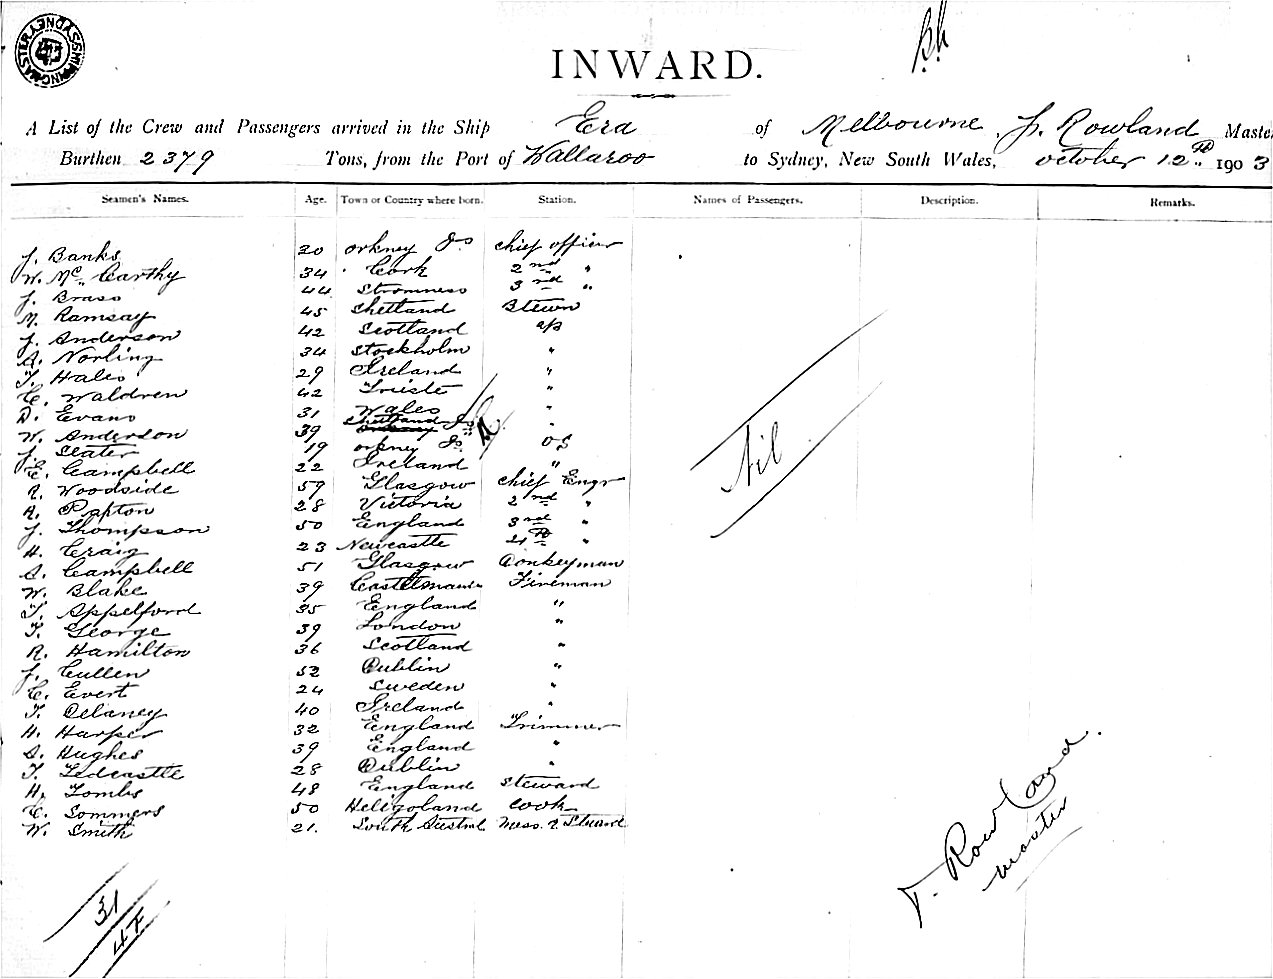 SHIPPING MASTER SYDNEY
INWARD.
A List of the Crew and Passengers arrived in the Ship Era of Melbourne, Rowland Maste
Burthen 2379 Tons, from the Port of Wallaroo to Sydney, New South Wales, October 12th 1903
Seamen's Names. Age. Town or Country where born. Station. Names of Passengers. Description. Remarks.
J. Banks 20 Orkney Is chief officer
W. Mc Carthy 34 Cork 2nd "
J. Brass 44 Stromness 3rd "
M. Ramsay 45 Shetland
J. Anderson 42 Scotland a/s
A. Norling 34 Stockholm "
T. Hales 29 Ireland "
C. Waldren 42 Trieste "
D. Evans 31 Wales "
W. Anderson 39 Shetland Is "
J. Slater 19 Orkney Is OS
E. Campbell 22 Ireland "
R. Woodside 59 Glasgow chief Engr
A. 28 Victoria 2nd "
J. Thompson 50 England 3rd "
H. Craig 23 Newcastle 4th "
A. Campbell 51 Glasgow Donkeyman
W. Blake 39 Castlemaine Fireman
T. Appelford 35 England "
T. George 39 London "
R. Hamilton 36 Scotland "
J. Cullen 52 Dublin "
C. Evert 24 Sweden "
T. Delaney 40 Ireland "
H. Harper 32 England Trimmer
A. Hughes 39 England "
T. Ledcastle 28 Dublin "
H. Tombs 48 England Steward
C. Sommers 50 Heligoland Cook
W. Smith 21. South Austral Mess. R Steward
Nil
T. Rowland
Master
31